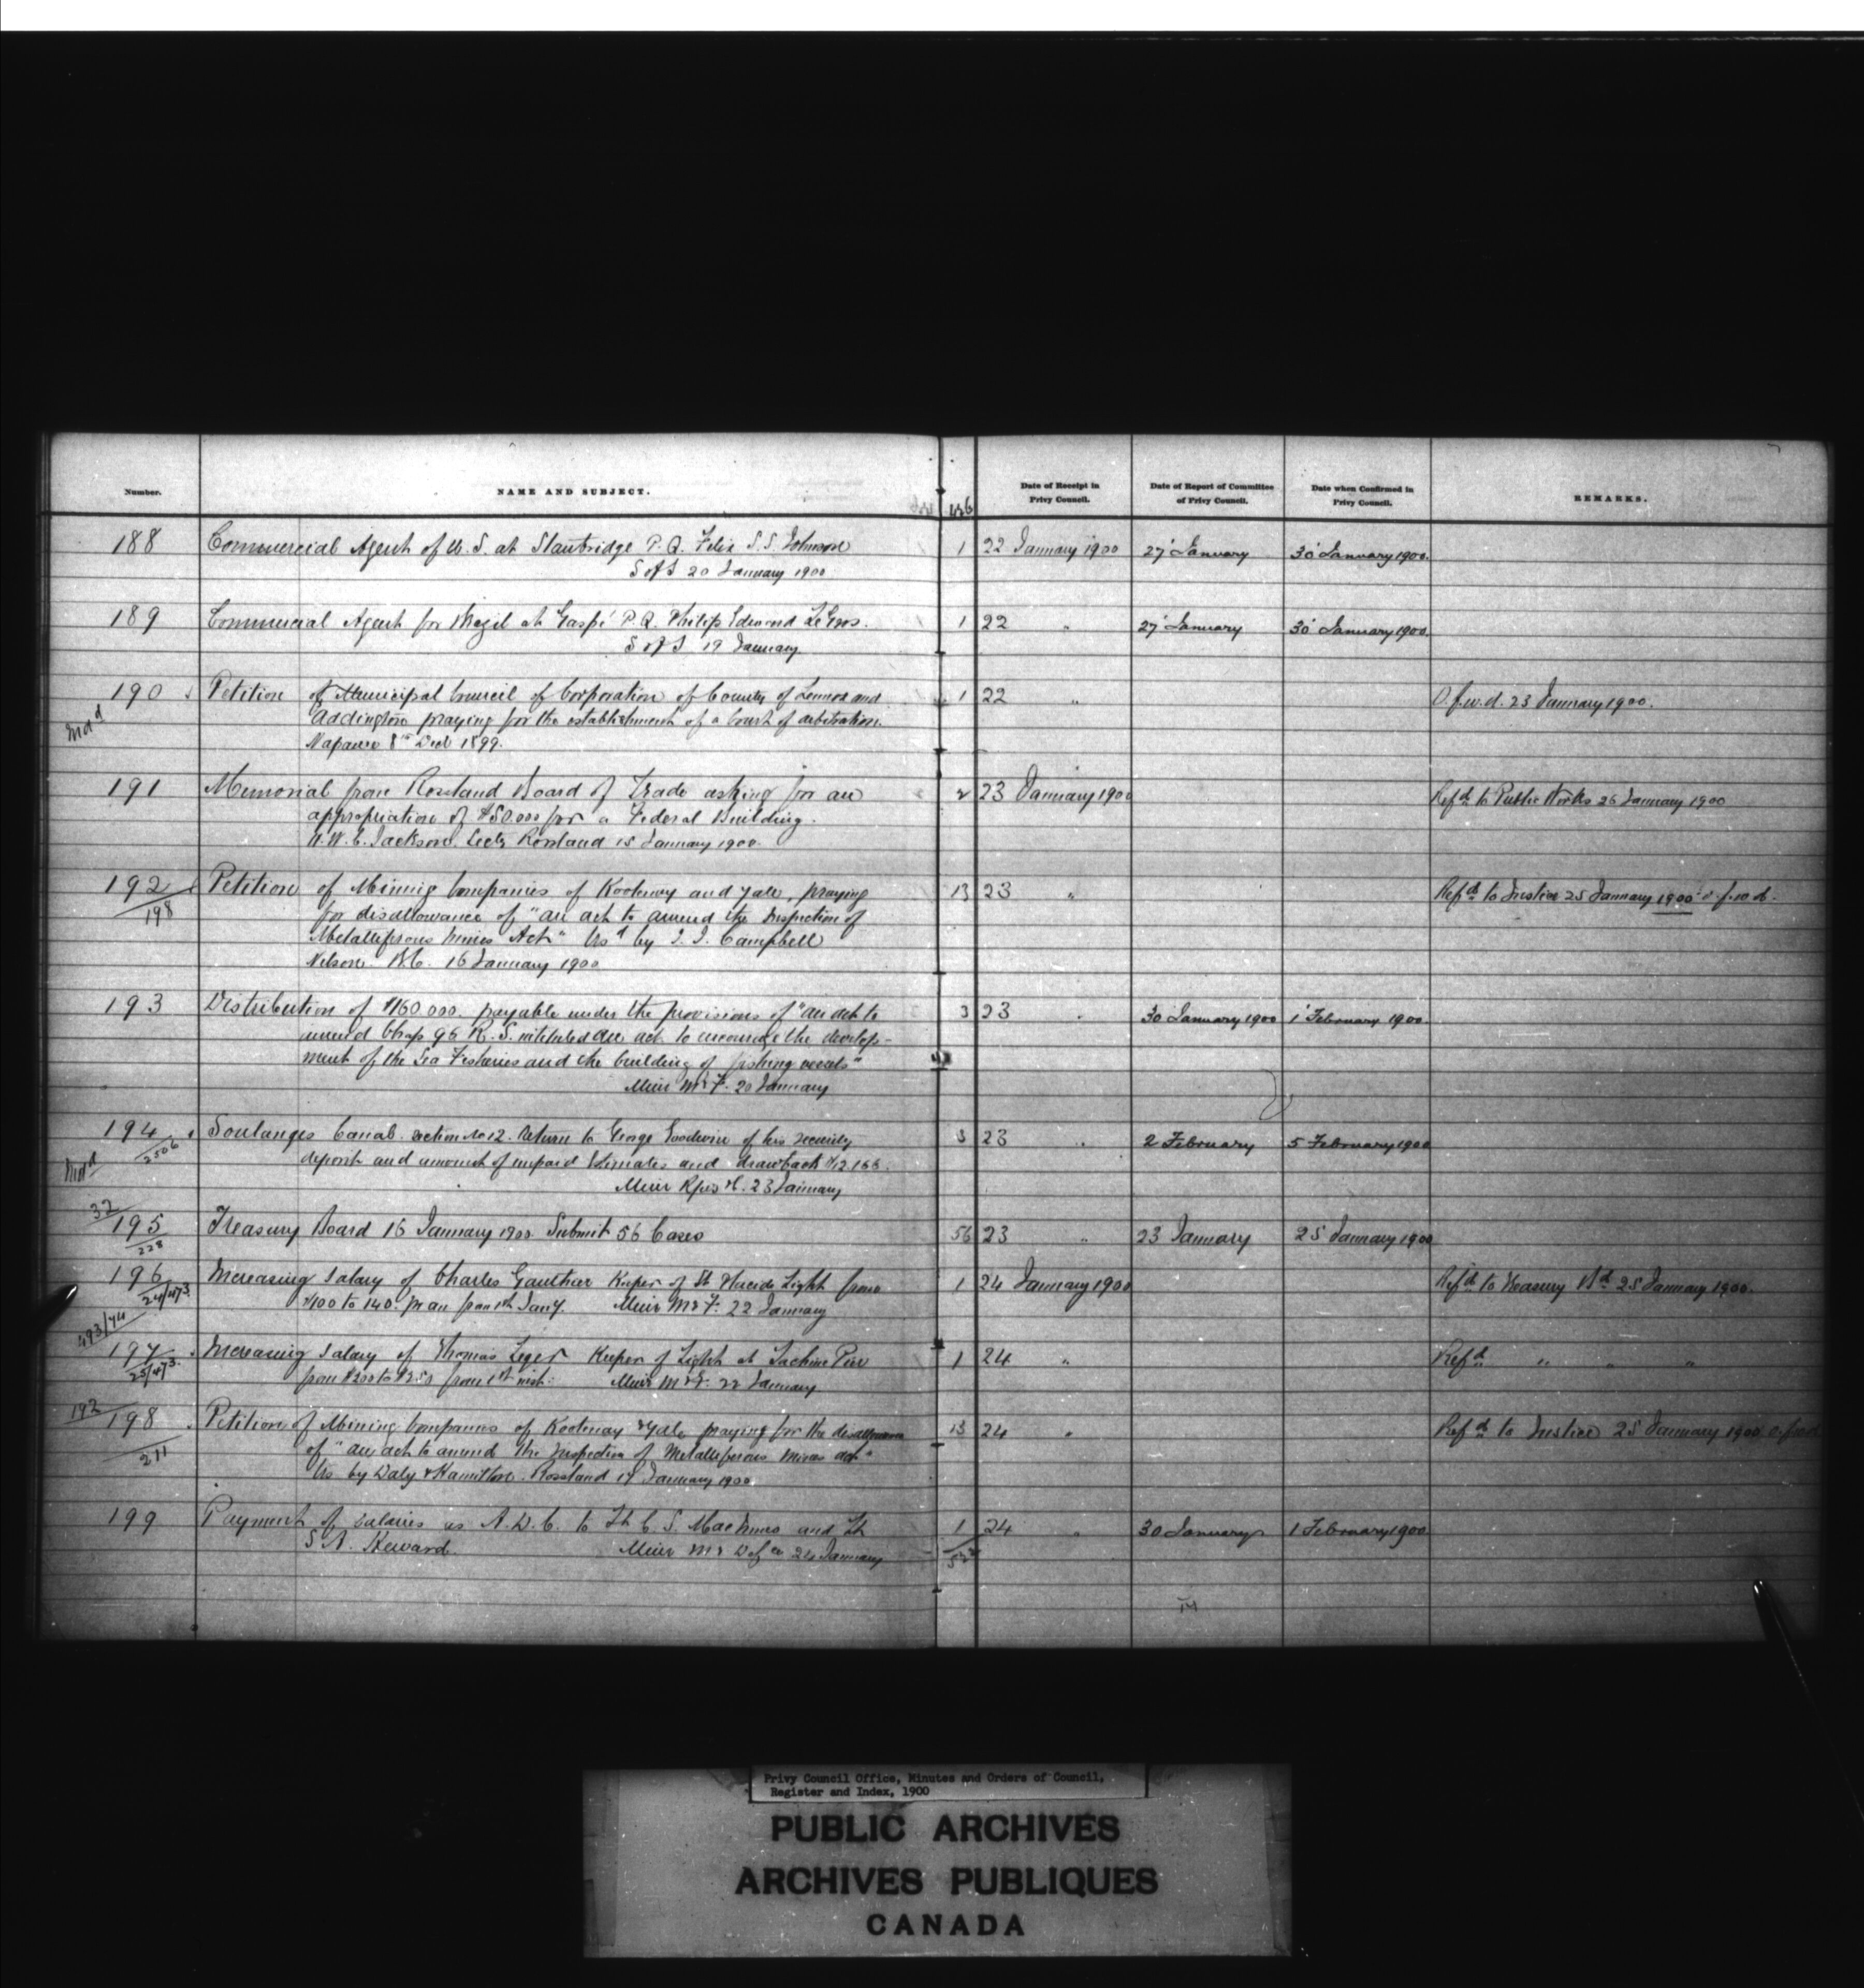 Number.
NAME AND SUBJECT.
Date of Receipt in
Privy Council.
Date of Report of Committee
of Privy Council.
Date when Confirmed in
Privy Council.
REMARKS.
188 Commercial Agent of U. S. at Stanbridge P. Q. Felix S. S. Johnson 1 22 January 1900 27 January 30 January 1900.
S of S 20 January 1900
189 Commercial Agent for Brazil at Gaspé P. Q. Philip Edmond LeGros. 1 22 " 27 January 30 January 1900.
S of S 19 January
190 Petition of Municipal Council of Corporation of County of Lennox and 1 22 " 23 January 1900.
Addington praying for the establishment of a Court of arbitration.
Napanee 8th Decr 1899.
191 Memorial from Rossland Board of Trade asking for an 2 23 January 1900 Refd to Public Works 26 January 1900
appropriation of $50.000 for a Federal Building.
Jackson. Secty Rossland 15 January 1900.
192 Petition of Mining Companies of Kootenay and Yale, praying 13 23 " Refd to Justice 25 January 1900
198
for disallowance of "an act to amend the Inspection of
Metalliferous Mines Act" by Campbell
Nelson B.C. 16 January 1900
193 Distribution of $160.000. payable under the provisions of "an act to 3 23 " 30 January 1900 1 February 1900.
amend Chap 96 R. S. intituled an act to encourage the develop-
ment of the Sea Fisheries and the building of fishing vessels"
Minr M & F. 20 January
194 Soulanges Canal. section No 12. Return to George Goodwin of his security 3 23 " 2 February 5 February 1900
2506
deposit and amount of unpaid Estimates and drawback
Minr Rys & C. 23 January
32
195 Treasury Board 16 January 1900. Submit 56 Cases 56 23 " 23 January 25 January 1900
228
196 Increasing salary of Charles Gauthier Keeper of St Placide Light from 1 24 January 1900 Refd to Treasury Bd 25 January 1900.
24/473
$100 to 140. pr an from 1st Jany. Minr M & F. 22 January
493/74
197 Increasing salary of Thomas Leger Keeper of Light at Lachine Pier 1 24 " Refd " " "
25/473.
from $200 to $250 from 1st inst. Minr M & F. 22 January
192
198 Petition of Mining Companies of Kootenay & Yale praying for the disallowance 13 24 " Refd to Justice 25 January 1900
211
of "an act to amend the Inspection of Metalliferous Mines act"
by Daly & Hamilton. Rossland 17 January 1900.
199 Payment of salaries as A. D. C. to Lt C. S. MacInnes and Lt 1 24 " 30 January 1 February 1900
Minr M & Defce 24 January
Privy Council Office, Minutes and Orders of Council,
Register and Index, 1900
PUBLIC ARCHIVES
ARCHIVES PUBLIQUES
CANADA